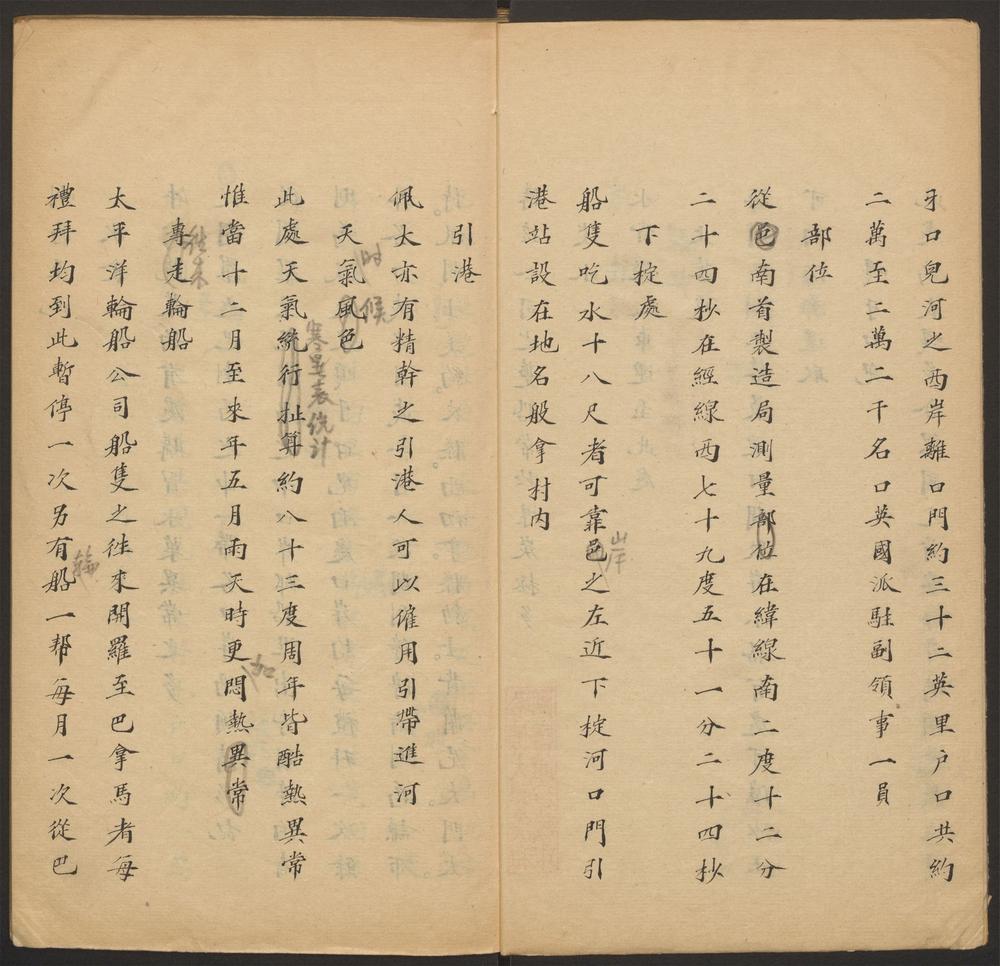 牙口兒河之西岸離口門約三十二英里户口共約
二萬至二萬二千名口英國派駐副領事一員
部位
從邑南首製造局測量部位在緯線南二度十二分
二十四抄在經線西七十九度五十一分二十四抄
下掟處
船隻吃水十八尺者可靠邑之左近下掟河口門引
岸
港站設在地名般拿村内
引港
佩大亦有精幹之引港人可以僱用引帶進河
天氣風色
时候
此處天氣統行扯算約八十三度周年皆酷熱異常
寒暑表统计
惟當十二月至來年五月雨天時更悶熱異常
加
專走輪船
往来
太平洋輪船公司船隻之徃來開羅至巴拿馬者每
禮拜均到此暫停一次另有船一帮每月一次從巴
輪